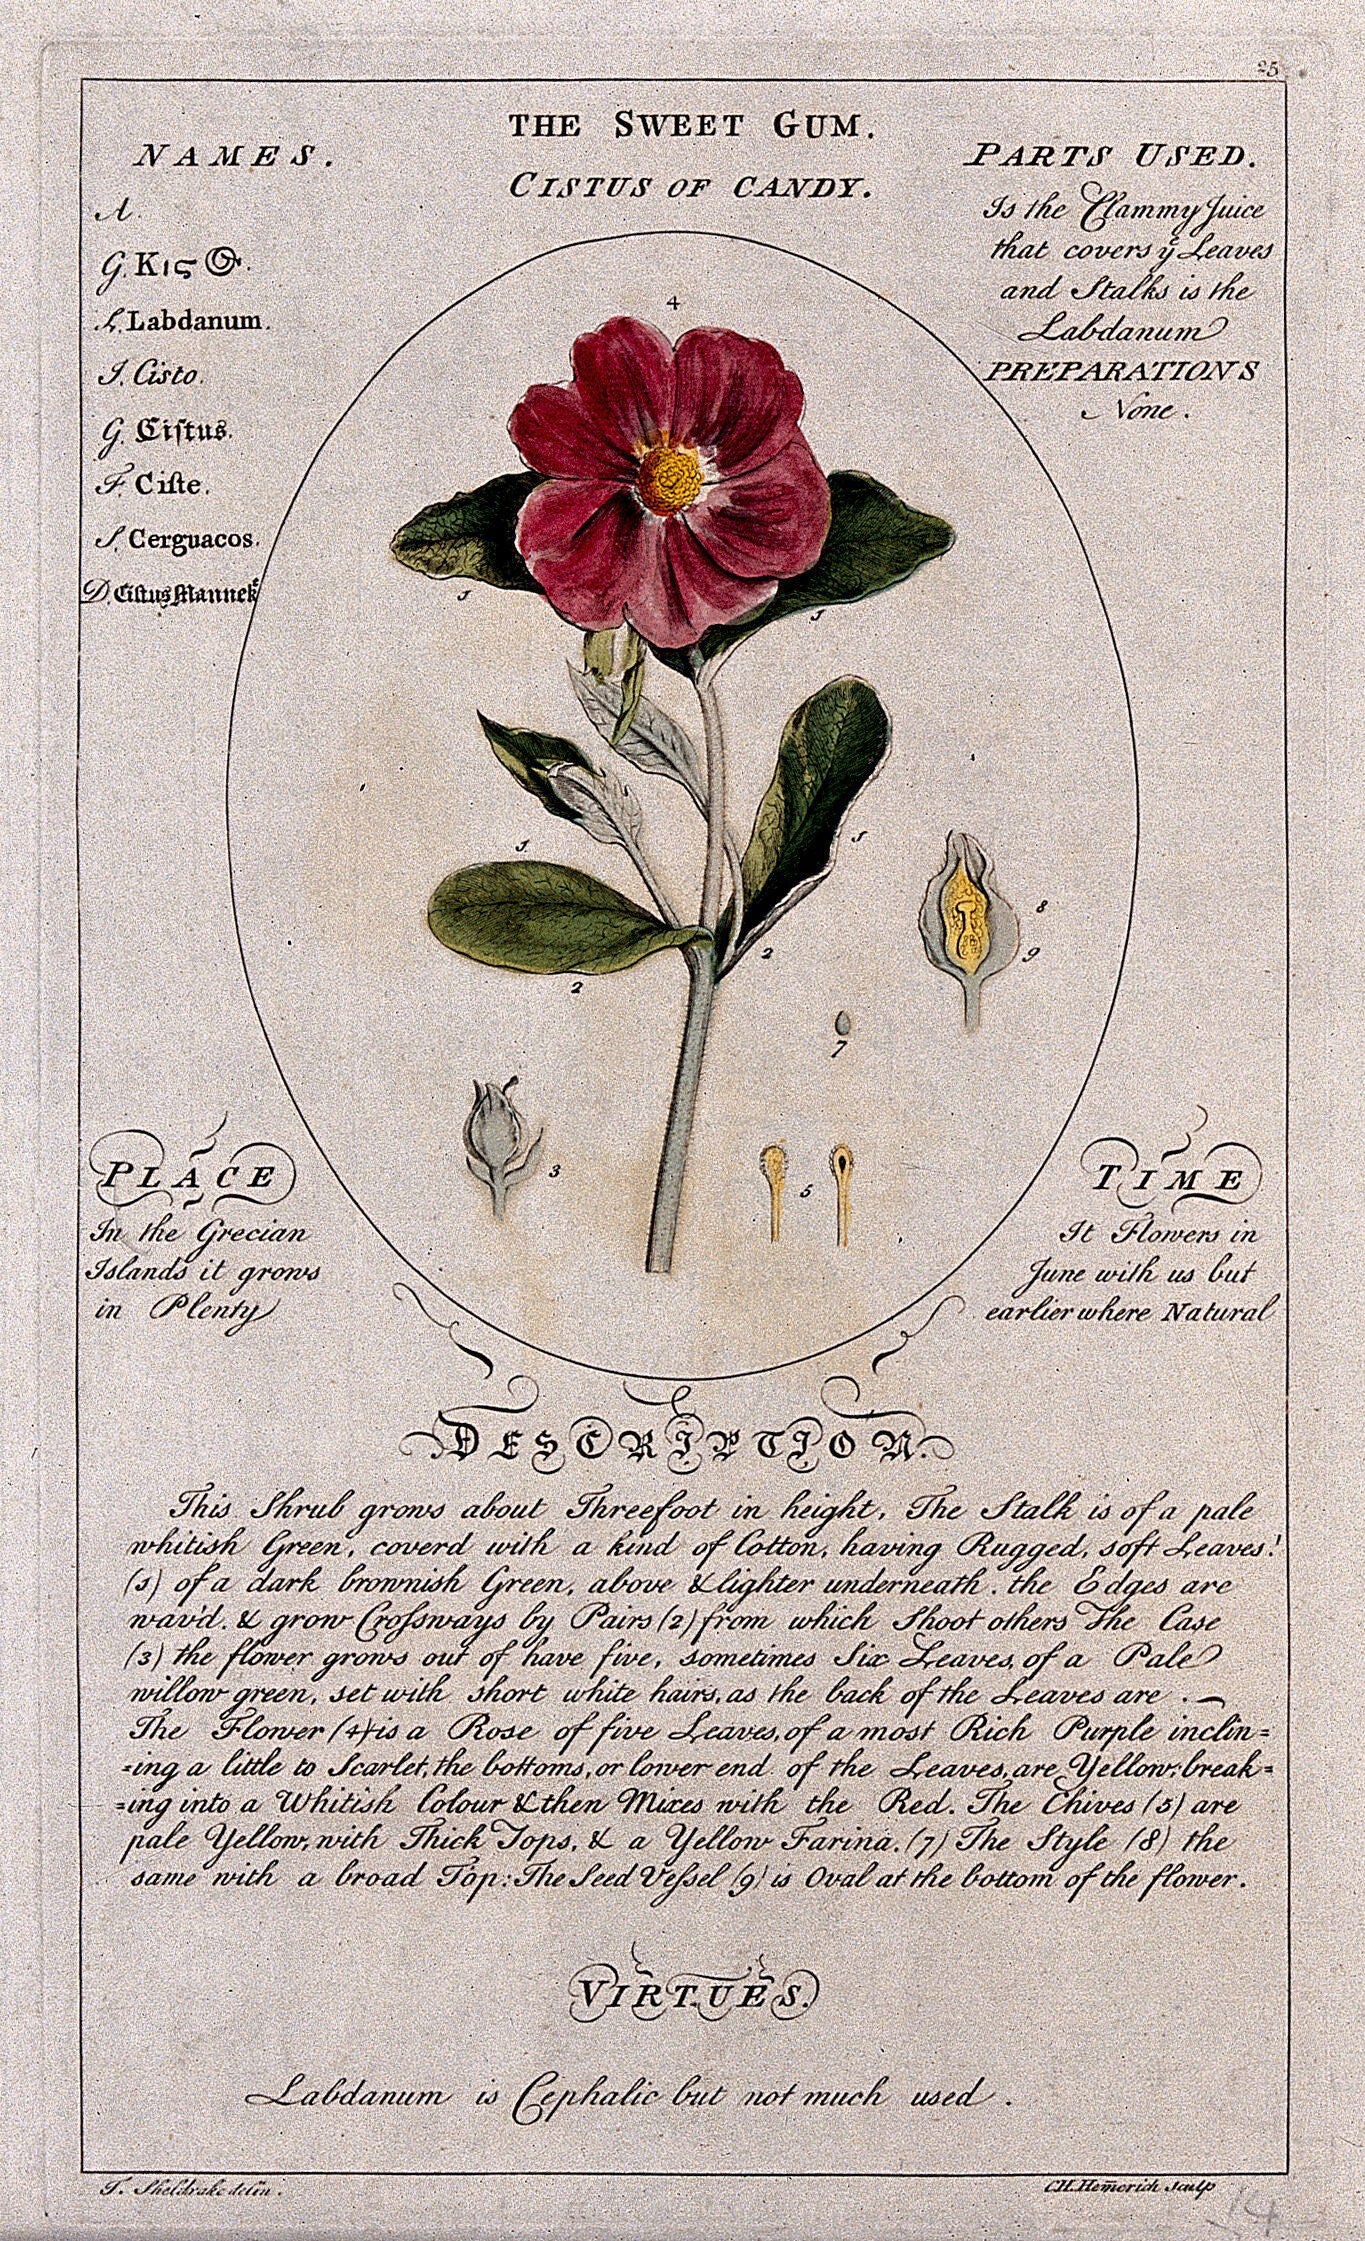 25
THE SWEET GUM.
CISTUS OF CANDY.
NAMES.
A.
G. Κις
L. Labdanum.
I. Cisto.
G. Ciſtus.
F. Ciſte.
S. Cerguacos.
D. Ciſtus Mannekͤ
PARTS USED.
Is the Clammy Juice
that covers yͤ Leaves
and Stalks is the
Labdanum
PREPARATIONS
None.
4
1
1
1
1
2
2
8
9
7
3
5
PLACE
In the Grecian
Islands it grows
in Plenty
TIME
It Flowers in
June with us but
earlier where Natural
DESCRIPTION.
This Shrub grows about Threefoot in height, The Stalk is of a pale
whitish Green, coverd with a kind of Cotton, having Rugged, soft Leaves.
(1) of a dark brownish Green, above & lighter underneath. the Edges are
wav'd. & grow Croſsways by Pairs (2) from which Shoot others The Case
(3) the flower grows out of have five, sometimes Six Leaves, of a Pale
willow green, set with short white hairs, as the back of the Leaves are.—
The Flower (4) is a Rose of five Leaves, of a most Rich Purple inclin=
=ing a little to Scarlet, the bottoms, or lower end of the Leaves, are Yellow; break=
=ing into a Whitish Colour & then Mixes with the Red. The Chives (5) are
pale Yellow, with Thick Tops, & a Yellow Farina. (7) The Style (8) the
same with a broad Top: The Seed Veſsel (9) is Oval at the bottom of the flower.
VIRTUES.
Labdanum is Cephalic but not much used.
T. Sheldrake delin.
C.H. Hem̄erich sculp
14